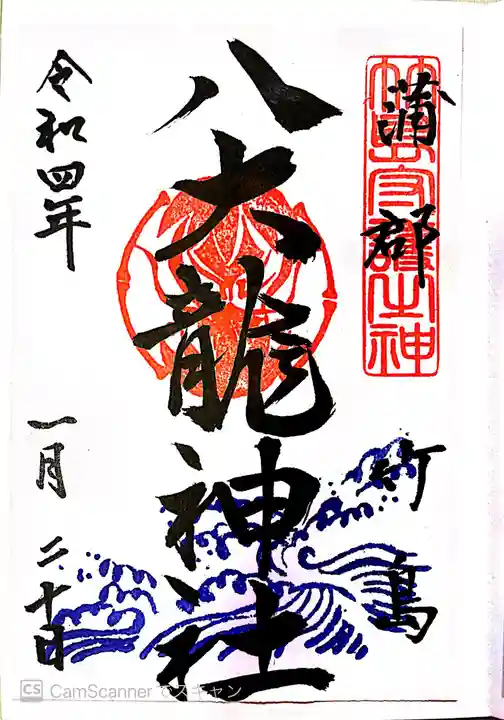 蒲郡
竹島
八大龍神社
令和四年
一月二十日
CS CamScanner でスキャン